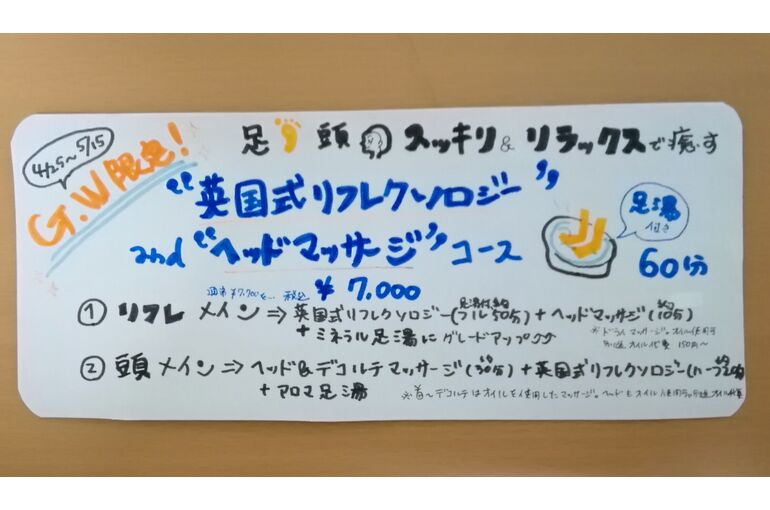 4/25〜5/15
G.W限定!
足 頭 スッキリ & リラックスで癒す
"英国式リフレクソロジー"
and "ヘッドマッサージ" コース
足湯
付き
60分
通常 ¥7,700を… 税込 ¥ 7,000
① リフレ メイン ⇒ 英国式リフレクソロジー(フル 50分) + ヘッドマッサージ(10分)
+ ミネラル足湯にグレードアップ
※ドライマッサージ。オイル使用可
別途オイル代金 150円〜
② 頭 メイン ⇒ ヘッド&デコルテマッサージ(30分) + 英国式リフレクソロジー(ハーフ
+ アロマ足湯
※首〜デコルテはオイルを使用したマッサージ。ヘッドもオイル